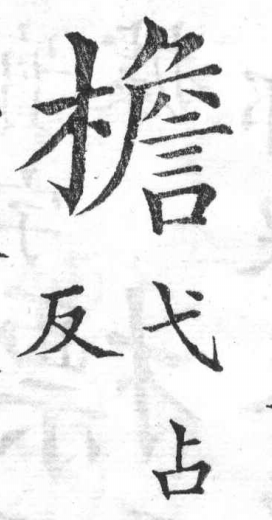 檐
弋占
反